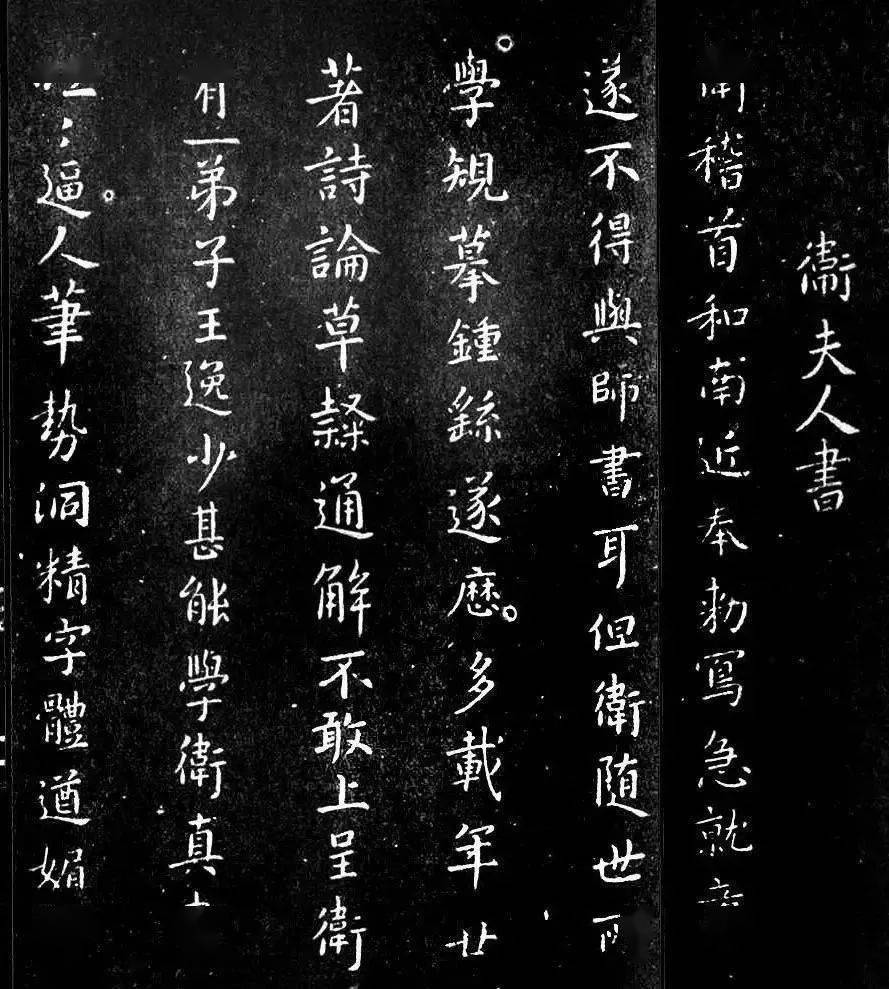 衞夫人書
稽首和南近奉勅寫急就
遂不得與師書耳但衛隨世所
學䂓摹鍾繇遂厯多載年廿
著詩論草隸通解不敢上呈衛
有一弟子王逸少甚能學衛真
逼人筆勢洞精字體遒媚